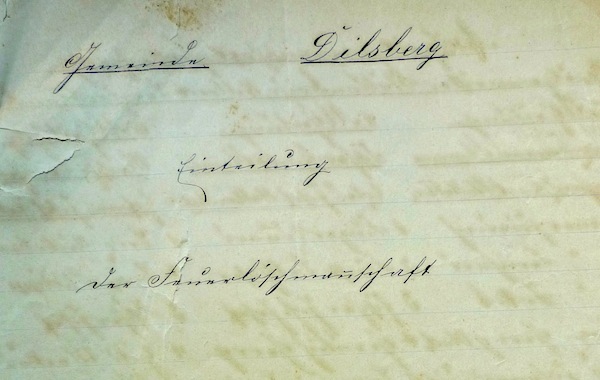 Gemeinde Dilsberg
Einteilung
der Feuerlöschman̄schaft